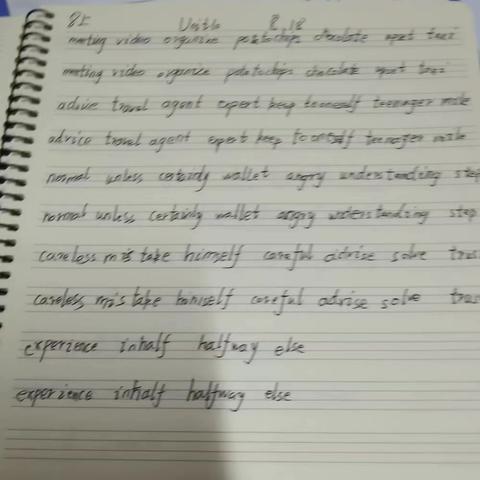 8上 Unit10 8.18
meeting video organize potatochips chocolate upset taxi
meeting video organize potatochips chocolate upset taxi
advice travel agent expert keep tooneself teenager mile
advice travel agent expert keep to oneself teenager mile
normal unless certainly wallet angry understanding step
normal unless certainly wallet angry understanding step
careless mistake himself careful advise solve trus
careless mistake himself careful advise solve trus
experience inhalf halfway else
experience inhalf halfway else